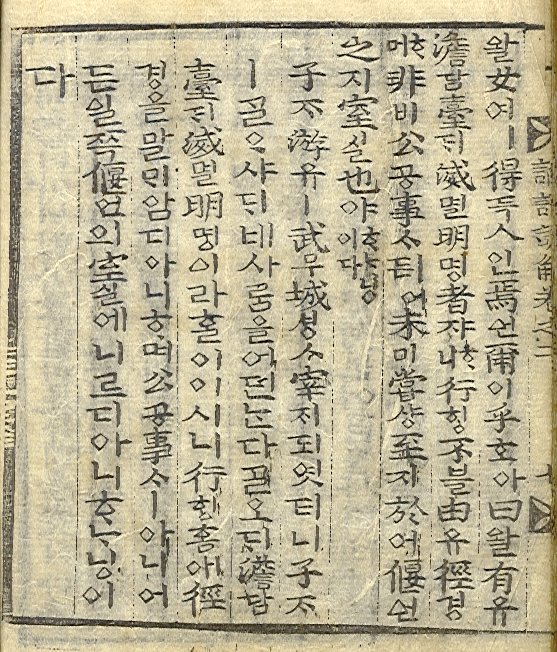 論語諺解卷之二
왈女여ㅣ得득人인焉언爾이乎호아曰왈有유
澹담臺ᄃᆡ滅멸明명者쟈ᄒᆞ니行ᄒᆡᆼ不블由유徑경
ᄒᆞ며非비公공事ᄉᆞㅣ어든未미嘗샹至지於어偃언
之지室실也야ᄒᆞᄂᆞ닝이다
子ᄌᆞ游유ㅣ武무城셩ㅅ宰ᄌᆡ되엿더니子ᄌᆞ
ㅣᄀᆞᆯᄋᆞ샤ᄃᆡ네사ᄅᆞᆷ을어던ᄂᆞᆫ다ᄀᆞᆯ오ᄃᆡ澹담
臺ᄃᆡ滅멸明명이라홀이이시니行ᄒᆡᆼ홈애徑
경을말ᄆᆡ암디아니ᄒᆞ며公공事ᄉᆞㅣ아니어
든일즉偃언의室실에니르디아니ᄒᆞᄂᆞ닝이
다